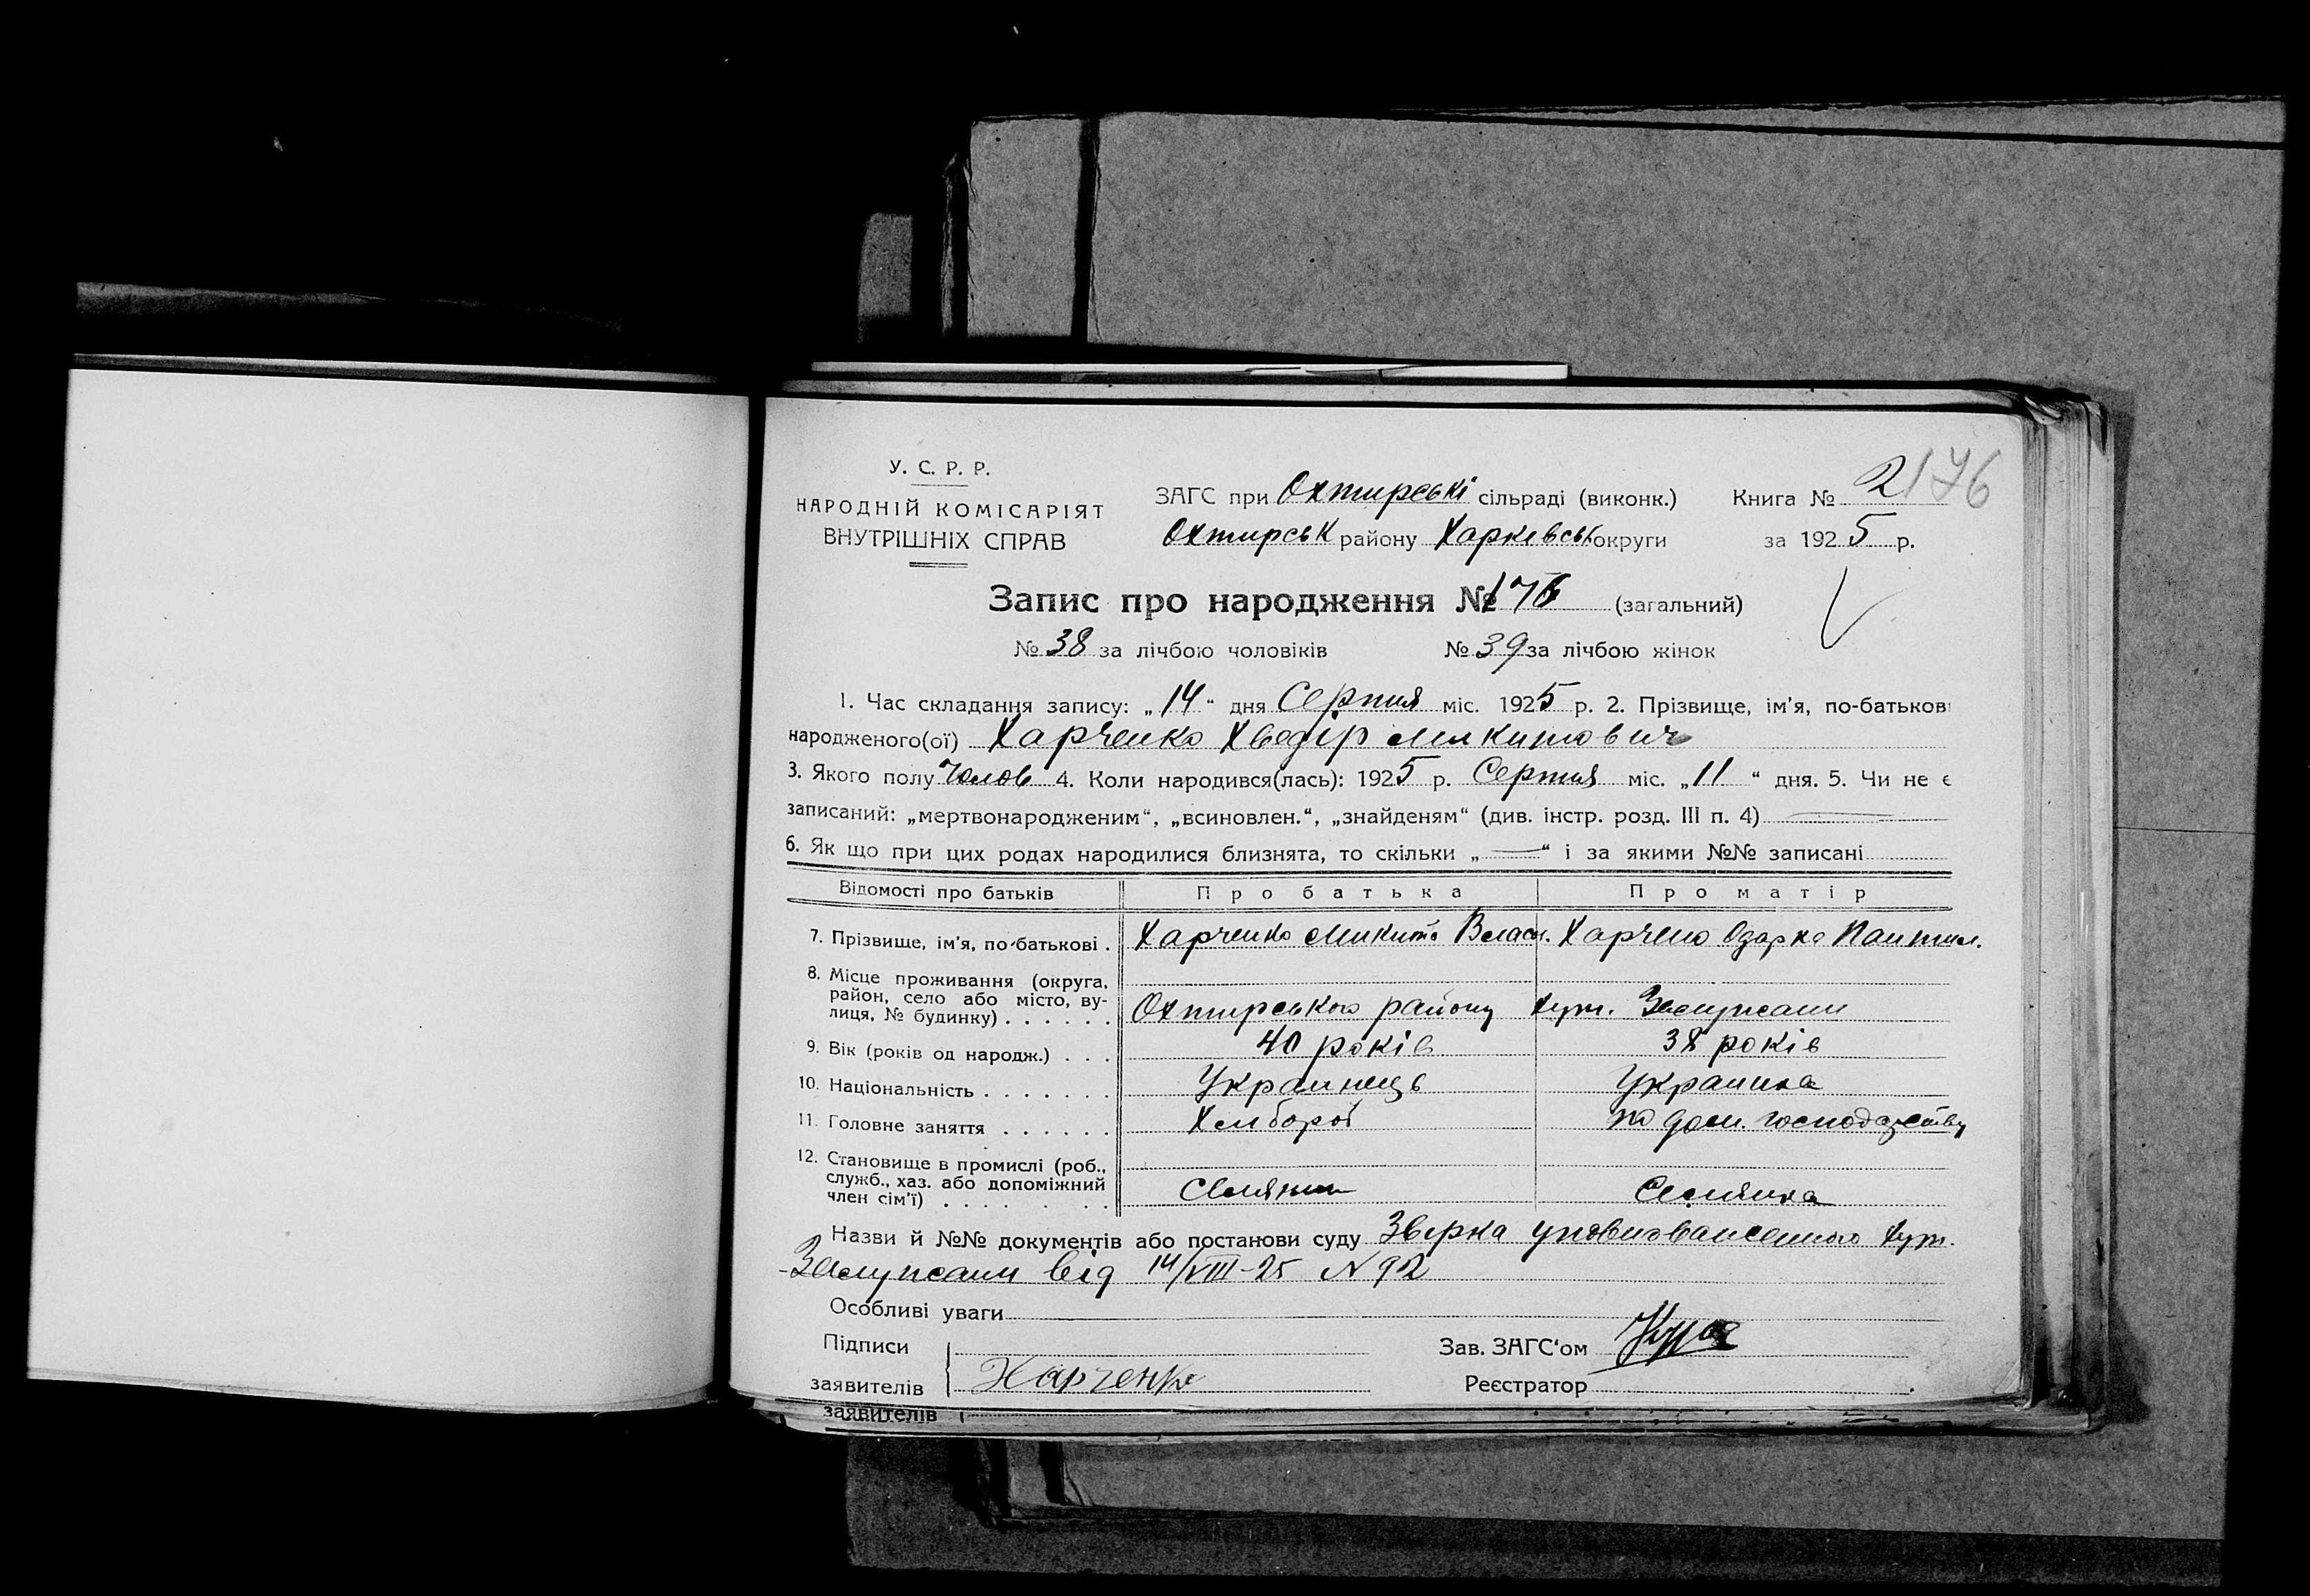 У. С. Р. Р.
НАРОДНІЙ КОМІСАРІЯТ
ВНУТРІШНІХ СПРАВ
ЗАГС при Охтирські сільраді (виконк.)
Охтирськ району Харківськ округи
Книга № 2
176
за 1925 р.
Запис про народження № 176 (загальний)
№ 38 за лічбою чоловіків № 39 за лічбою жінок
1. Час складання запису: „14“ дня Серпня міс. 1925 р. 2. Прізвище, ім'я, по-батькові
народженого(ої) Харченко Хведір Микитович
3. Якого полу чолов 4. Коли народився(лась): 1925 р. Серпня міс. „11“ дня. 5. Чи не є
записаний: „мертвонародженим“, „всиновлен.“, „знайденям“ (див. інстр. розд. III п. 4)
6. Як що при цих родах народилися близнята, то скільки „—“ і за якими №№ записані
Відомості про батьків Про батька Про матір
7. Прізвище, ім'я, по-батькові . Харченко Микита Власов. Харчено Одарка Пантил.
8. Місце проживання (округа,
район, село або місто, ву-
лиця, № будинку) . . . . . . Охтирського району хут.
9. Вік (років од народж.) . . . 40 років 38 років
10. Національність . . . . . . . Украинець Украинка
11. Головне заняття . . . . . . Хлибороб по дом. господарству
12. Становище в промислі (роб.,
служб., хаз. або допоміжний
член сім'ї) . . . . . . . Селянин Селянка
Назви й №№ документів або постанови суду хут.
від 14/VIII-25 N 92
Особливі уваги
Підписи
заявителів Харченко
Зав. ЗАГС'ом
Реєстратор
заявителів